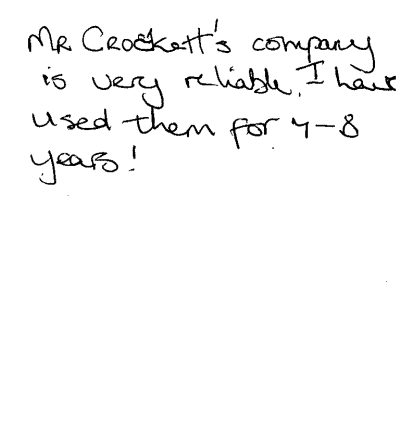 Mr Crockett's company
is very reliable. I have
used them for 4-8
years!